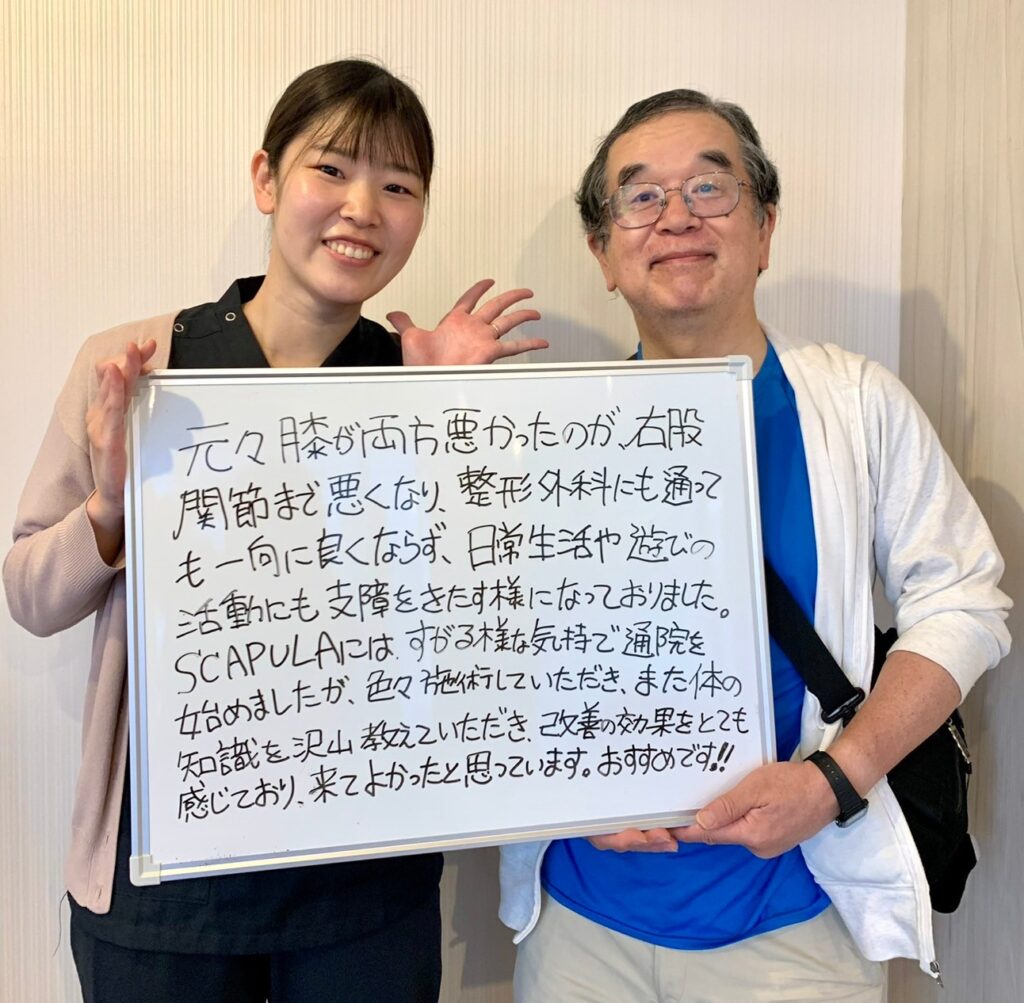 元々膝が両方悪かったのが、右股
関節まで悪くなり、整形外科にも通って
も一向に良くならず、日常生活や遊びの
活動にも支障をきたす様になっておりました。
SCAPULAには、すがる様な気持で通院を
始めましたが、色々施術していただき、また体の
知識を沢山教えていただき、改善の効果をとても
感じており、来てよかったと思っています。おすすめです!!